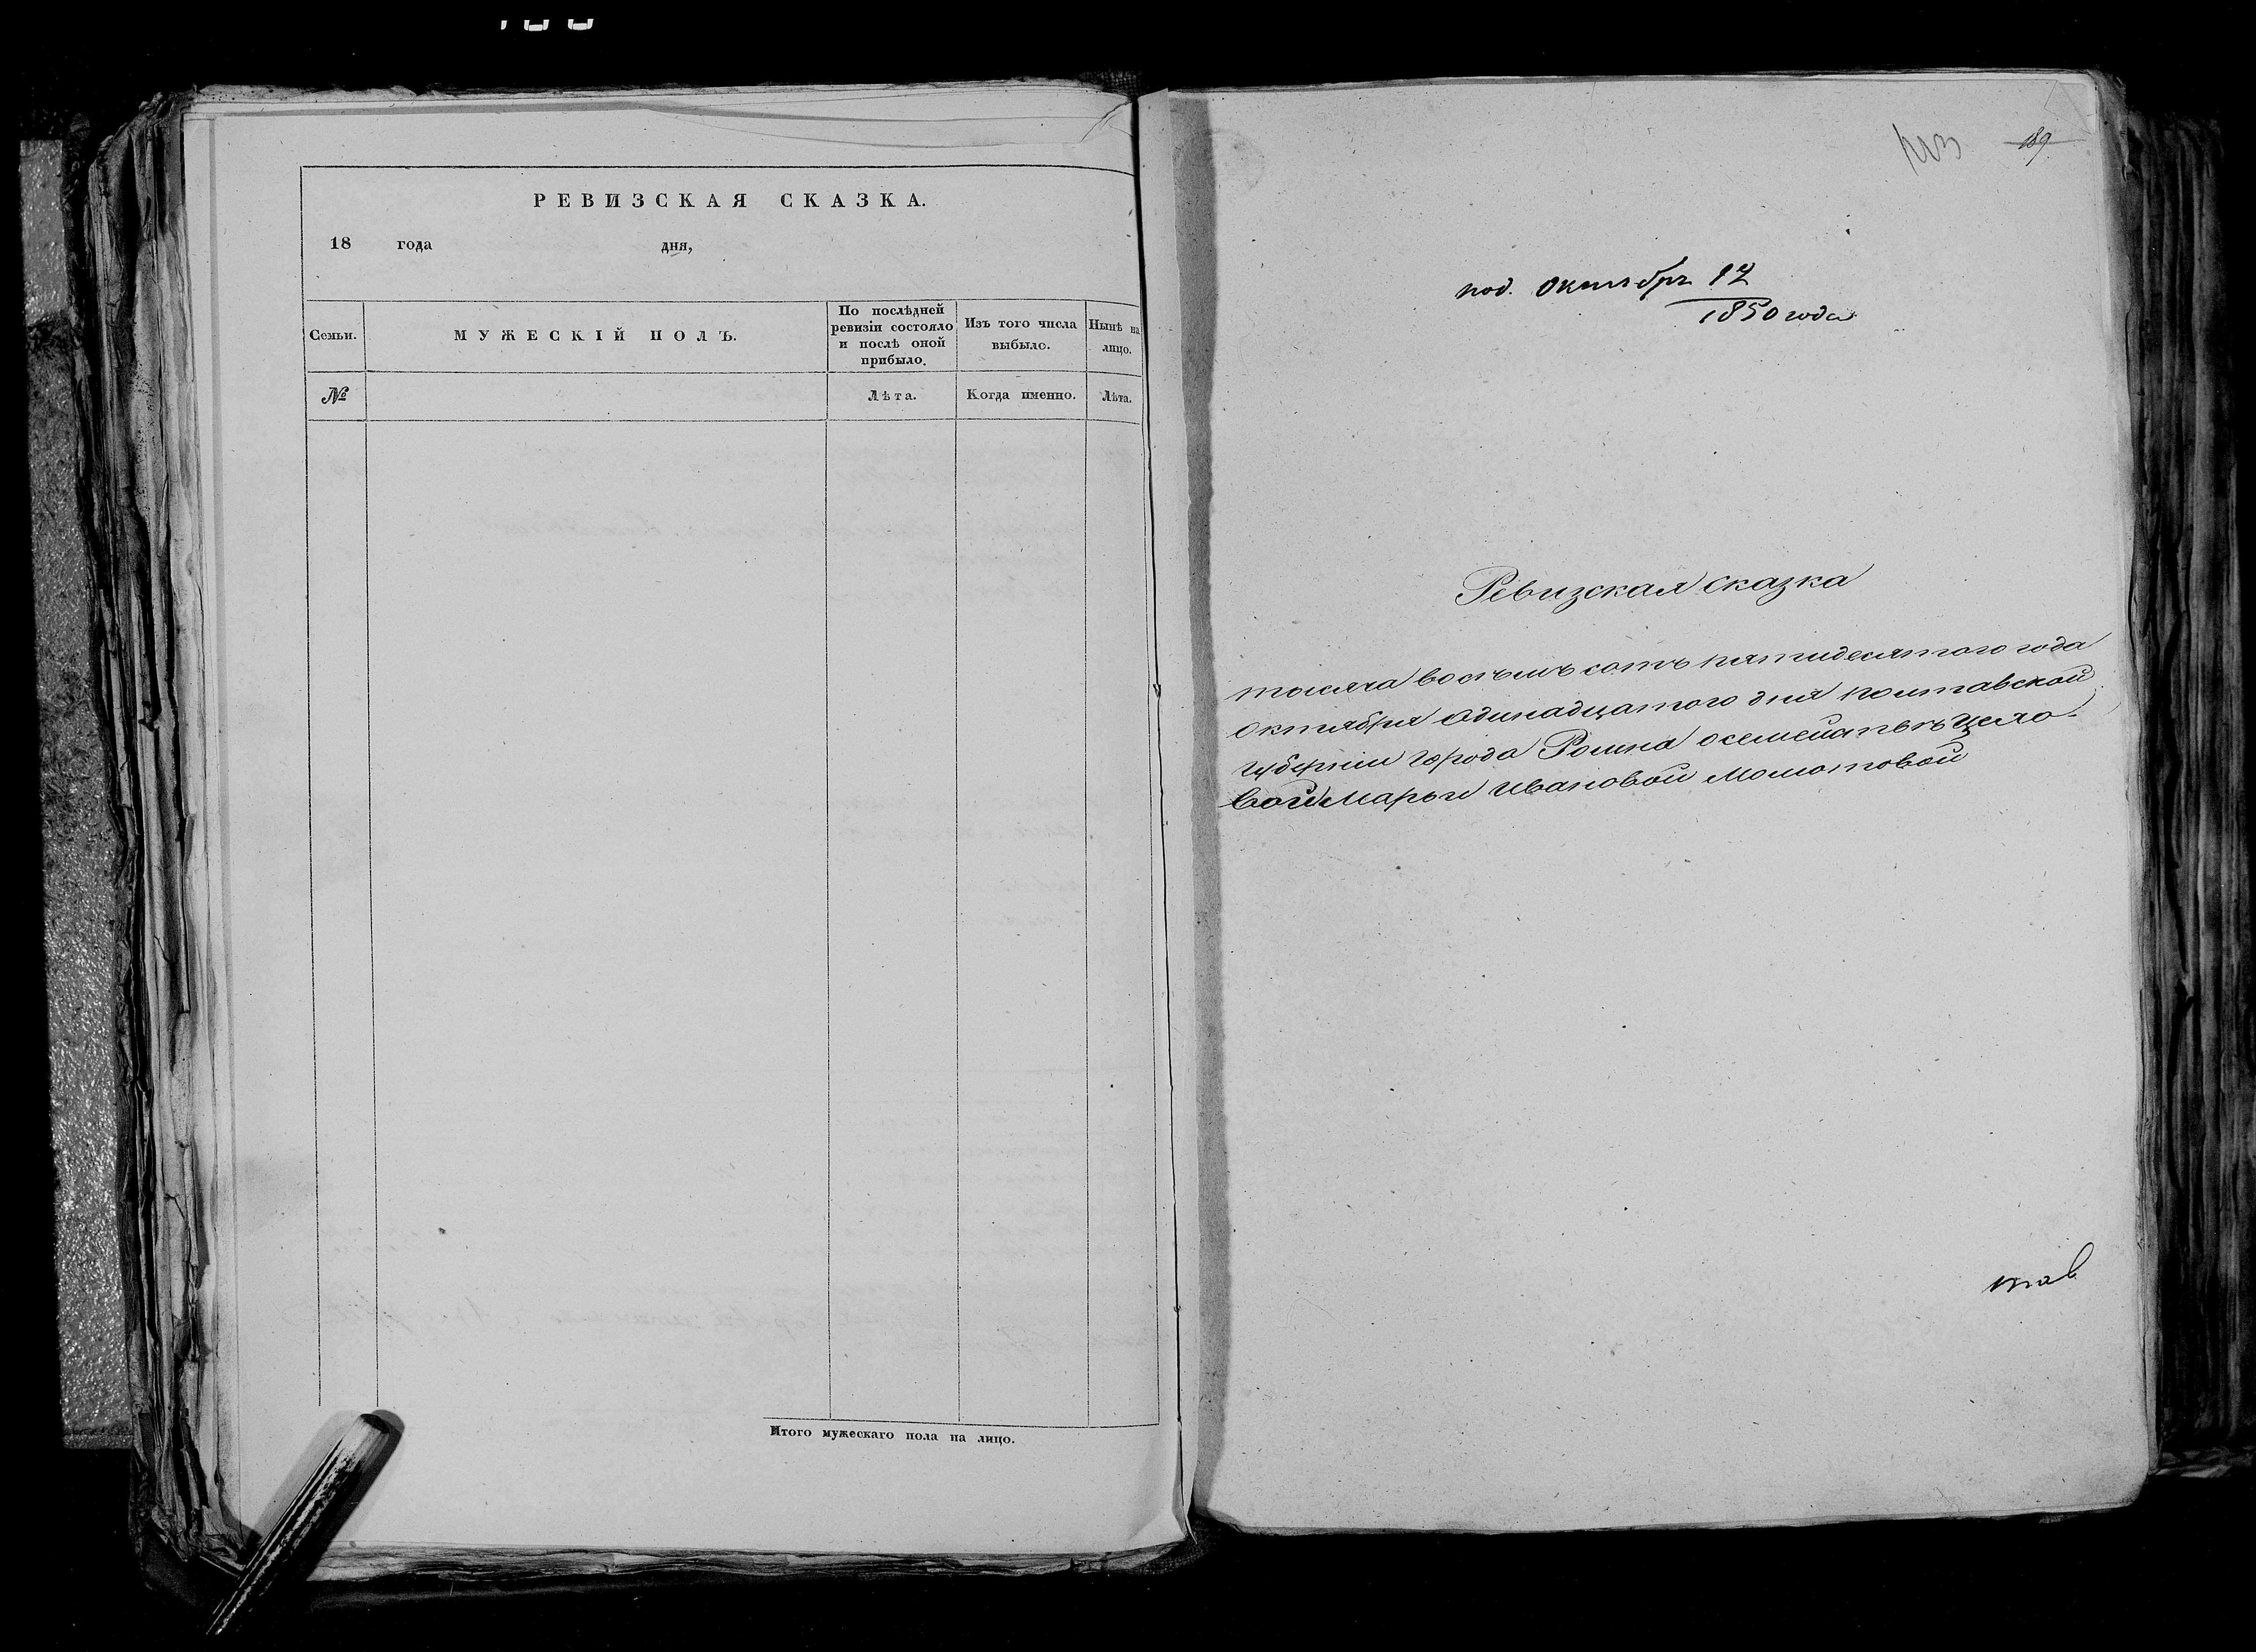 РЕВИЗСКАЯ СКАЗКА.
18 года дня,
Семьи.
МУЖЕСКІЙ ПОЛЪ.
По послѣдней ревизіи состояло и послѣ оной прибыло.
Изъ того числа выбыло.
Нынѣ на лицо.
№
Лѣта.
Когда именно.
Лѣта.
Итого мужескаго пола на лицо.
189
под. Октября 17
1850 года
Ревизская сказка
тысяча восѣмь сотъ пятидесятого года
Октября Одинадцатого дня полтавской
Губерніи Города Ромна о семействѣ Цехо-
вой Марьи Ивановой Момотовой